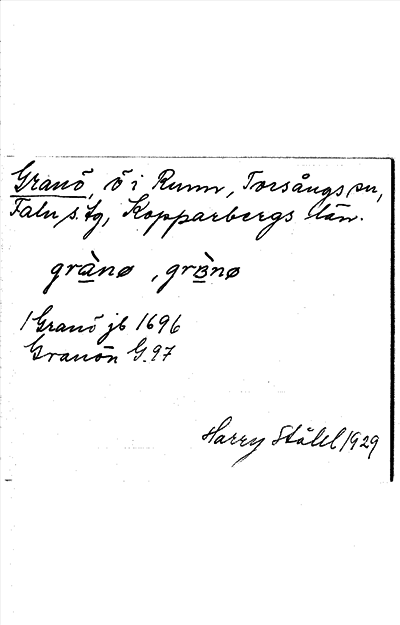 Granö, ö i Runn, Torsångs sn,
Falu s. tg, Kopparbergs län.
grànø, grànø
1 Granö jb 1696
Granön G. 97
Harry Ståhl 1929